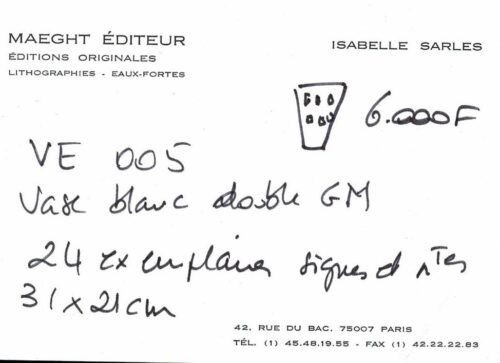 MAEGHT ÉDITEUR
ÉDITIONS ORIGINALES
LITHOGRAPHIES - EAUX-FORTES
ISABELLE SARLES
6.000F
VE 005
Vase blanc double GM
24 exemplaires signes et nTes
31x21cm
42, RUE DU BAC. 75007 PARIS
TÉL. (1) 45.48.19.55 - FAX (1) 42.22.22.83